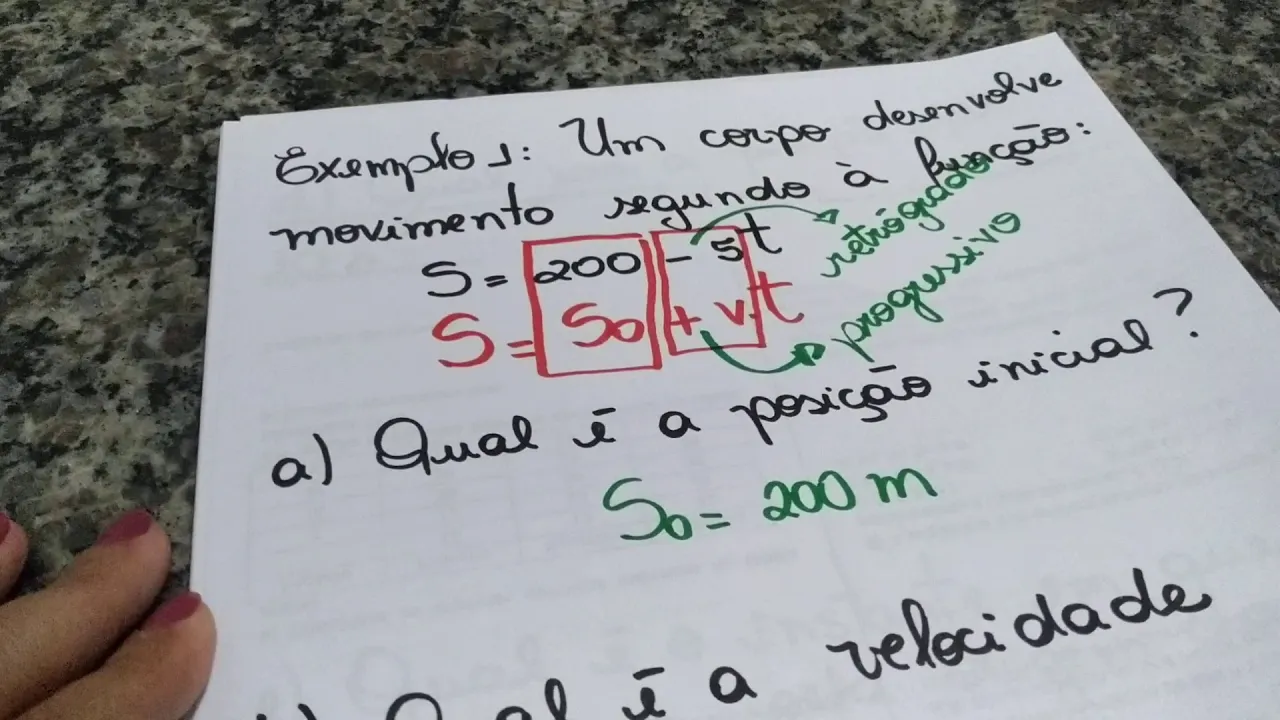 Exemplo 1: Um corpo desenvolve
movimento segundo à função:
S = 200 - 5t
retrógrado
S = So + v.t
progressivo
a) Qual é a posição inicial?
So = 200 m
b) Qual é a velocidade